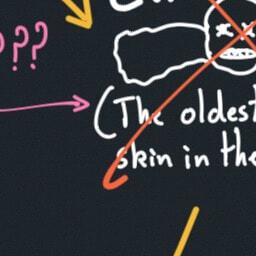 ??
(The oldest
skin in the